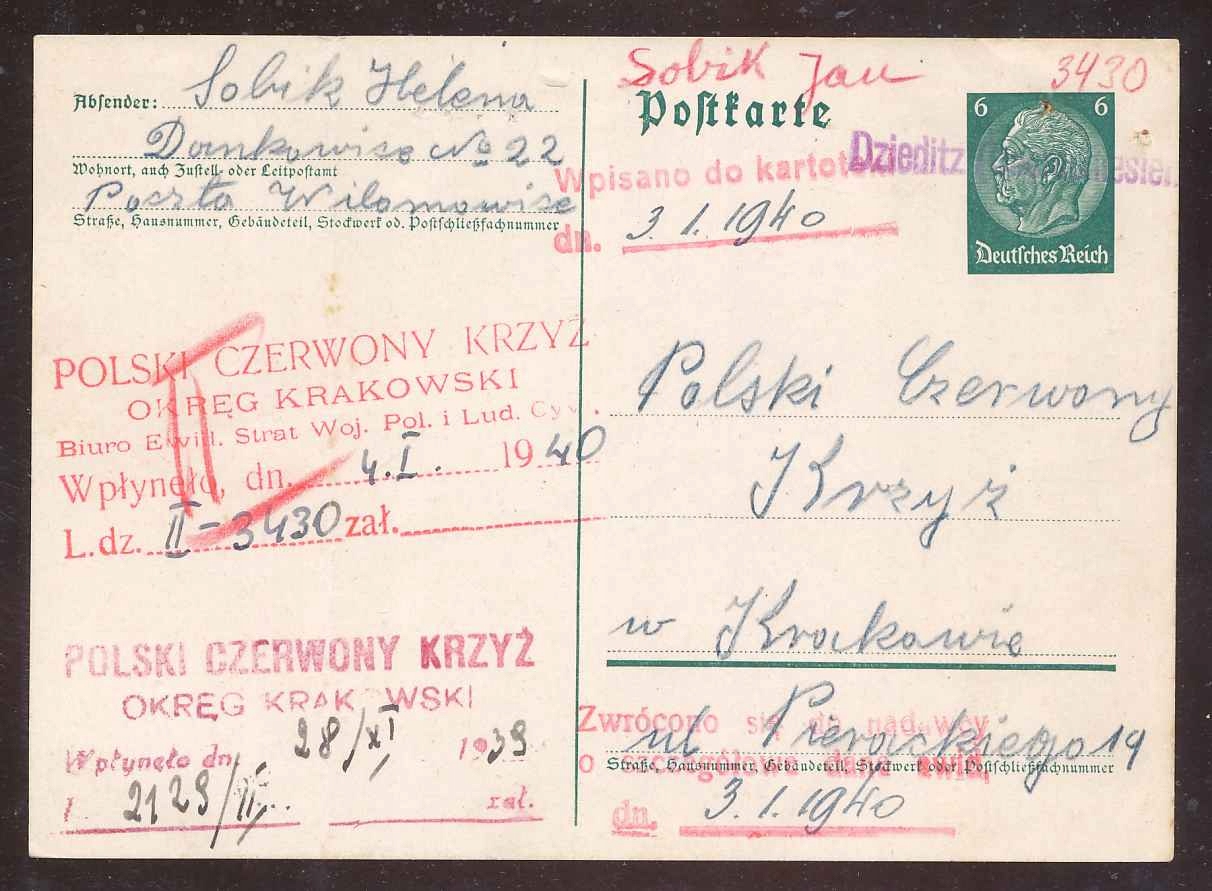 Sobik Jan 3430
Absender: Sobik Helena
Dankowise No 22
Wohnort, auch Zustell- oder Leitpostamt
Poczta Wilamowise
Straße, Hausnummer, Gebäudeteil, Stockwerk od. Postschließfachnummer
POLSKI CZERWONY KRZYŻ
OKRĘG KRAKOWSKI
Biuro Ewid. Strat Woj. Pol. i Lud. Cyw.
Wpłynęło, dn. 4.I. 1940
L.dz. II-3430 zał.
POLSKI CZERWONY KRZYŻ
OKRĘG KRAKOWSKI
Wpłynęło dn. 28/XI 1939
2129/II zał.
Postkarte
6 6
Deutsches Reich
Dzieditz
Wpisano do kartoteki
dn. 3. 1. 1940
Polski Czerwony
Krzyż
w Krakowie
ul Pierackiego 19
Straße, Hausnummer, Gebäudeteil, Stockwerk oder Postschließfachnummer
Zwrócono się do nadawcy
o szczegółowe dane ewid.
dn. 3. 1. 1940